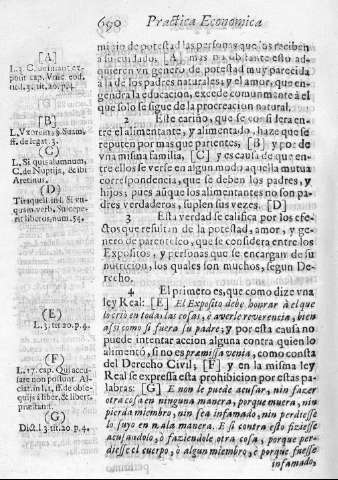 690 Practica Economica
[A]
[B]
ff. de legat. 3.
(C)
L. Si quis alumnum,
C. de Nuptijs, & ibi
Aretinus.
(D)
Tiraquell. ins. Si vn-
quam, verb. Suscepe-
rit liberos, num. 54.
(E)
L. 3. tit. 20. p. 4.
(F)
L. 17. cap. Qui accu-
sare non possunt. Al-
quijs à liber. & libert.
præstant.
(G)
Dict. l. 3. tit. 20. p. 4.
de potestad las personas que los reciben
a su cuidado, [A] mas no obstante esto ad-
quieren vn genero de potestad muy parecida
à la de los padres naturales, y el amor, que en-
gendra la educacion, excede comunmante à el
que solo se sigue de la procreacion natural.
2 Este cariño, que se considera en-
tre el alimentante, y alimentado, haze que se
reputen por mas que parientes, [B] y por de
vna misma familia, [C] y es causa de que en-
tre ellos se verse en algun modo aquella mutua
correspondencia, que se deben los padres, y
hijos; pues aunque los alimentantes no son pa-
dres verdaderos, suplen sus vezes. [D]
3 Esta verdad se califica por los efe-
ctos que resultan de la potestad, amor, y ge-
nero de parentesco, que se considera entre los
Expositos, y personas que se encargan de su
nutricion, los quales son muchos, segun De-
recho.
4 El primero es, que como dize vna
ley Real: [E] El Exposito debe honrar à el que
lo criò en todas las cosas, è averle reverencia, bien
assi como si fuera su padre; y por esta causa no
puede intentar accion alguna contra quien lo
alimentò, si no es præmissa venia, como consta
del Derecho Civil, [F] y en la misma ley
Real se expressa esta prohibicion por estas pa-
labras: [G] E non le puede acusar, nin fazer
otra cosa en ninguna manera, porque muera, nin
pierda miembro, nin sea infamado, nin perdiesse
lo suyo en mala manera. E si contra esto fiziesse
acusandolo, ò faziendole otra cosa, porque per-
diesse el cuerpo, ò algun miembro, è porque fuesse
infamado,